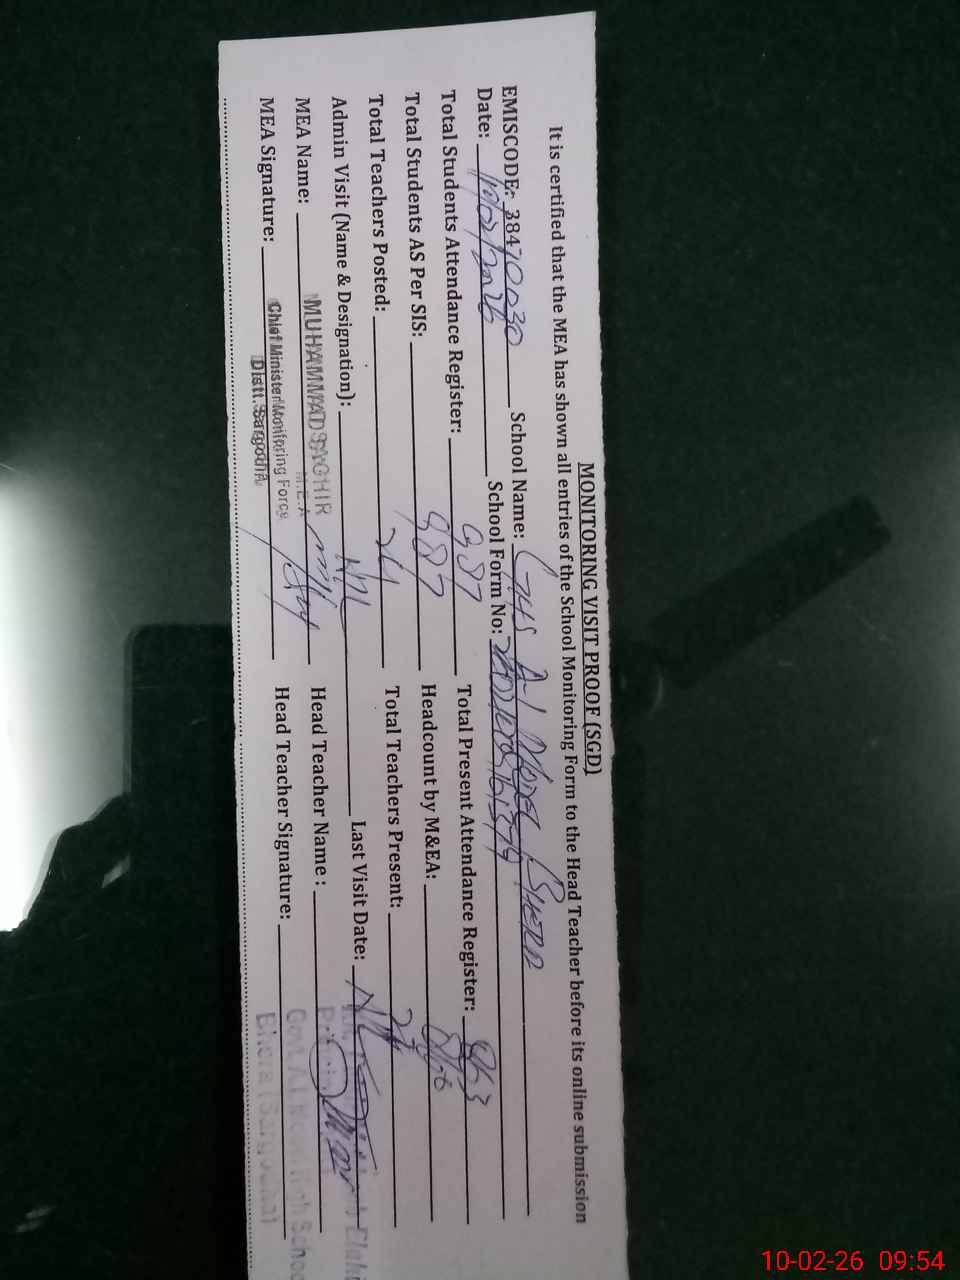 MONITORING VISIT PROOF (SGD)
It is certified that the MEA has shown all entries of the School Monitoring Form to the Head Teacher before its online submission
EMISCODE: 38470030 School Name: GHS Al Model BHERA
Date: 10/02/2026 School Form No:
Total Students Attendance Register: 987 Total Present Attendance Register: 863
Total Students AS Per SIS: 987 Headcount by M&EA:
Total Teachers Posted: 24 Total Teachers Present:
Admin Visit (Name & Designation): Nil Last Visit Date: Nil
MEA Name: MUHAMMAD SAGHIR Head Teacher Name :
M.E.A
MEA Signature: Head Teacher Signature:
Chief Minister Monitoring Force
Distt. Sargodha
Principal
Govt. Al High School
Bhera (Sargodha)
10-02-26 09:54